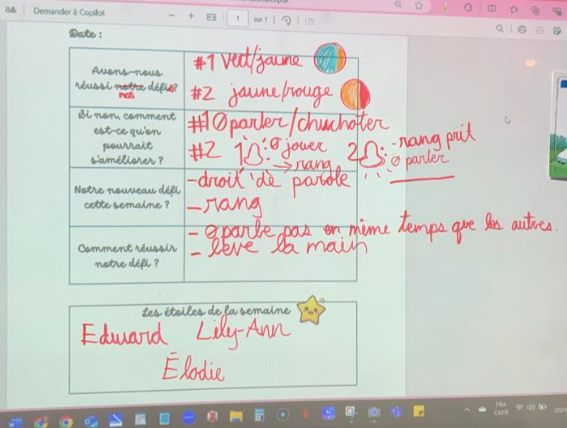 Demander à Copilot
1
sur 1
Date :
Avons-nous
réussi notre défis?
nos
#1 vert/jaune
#2 jaune/rouge
Si non, comment
est-ce qu'on
pourrait
s'améliorer ?
#1 Ø parler/chuchoter
#2 1 : Ø jouer
→ rang
2 : - rang prit
Ø parler
Notre nouveau défi
cette semaine ?
- droit de parole
- rang
Comment réussir
notre défi ?
- Ø parle pas en même temps que les autres.
- lève la main
Les étoiles de la semaine
Edward Lily-Ann
Élodie
FRA
CAFR